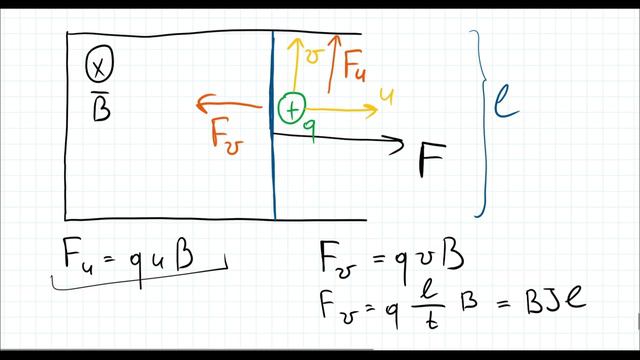 x
B̅
v
F_u
u
+
q
F_v
F
l
F_u = q u B
F_v = q v B
F_v = q l/t B = B J l